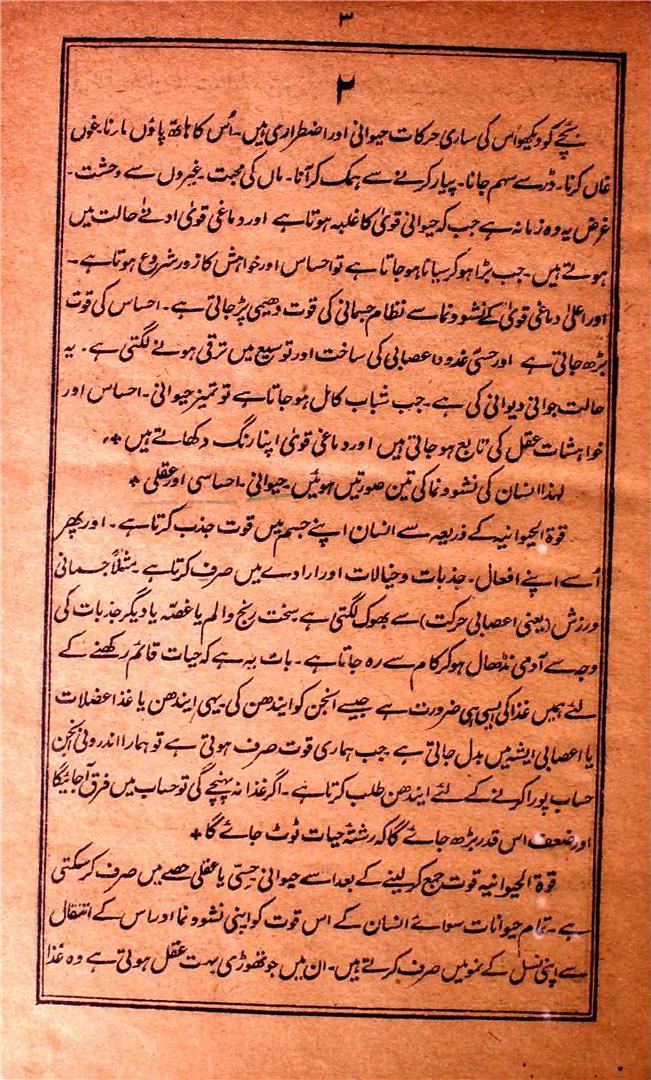 ۳
۲
بچّے کو دیکھو اُس کی ساری حرکات حیوانی اور اضطراری ہیں۔ اُس کا ہاتھ پاؤں مارنا۔ غوں
غاں کرنا۔ ڈر سے سہم جانا۔ پیار کرنے سے ہمک کر آنا۔ ماں کی محبت۔ غیروں سے وحشت۔
غرض یہ وہ زمانہ ہے جب کہ حیوانی قویٰ کا غلبہ ہوتا ہے اور دماغی قویٰ ادنےٰ حالت میں
ہوتے ہیں۔ جب بڑا ہو کر سیانا ہو جاتا ہے تو احساس اور خواہش کا زور شروع ہوتا ہے۔
اور اعلیٰ دماغی قویٰ کے نشوونما سے نظام جسمانی کی قوت دھیمی پڑ جاتی ہے۔ احساس کی قوت
بڑھ جاتی ہے اور حسّی غدود اعصابی کی ساخت اور توسیع میں ترقی ہونے لگتی ہے۔ یہ
حالت جوانی دیوانی کی ہے۔ جب شباب کامل ہو جاتا ہے تو تمیز حیوانی۔ احساس اور
خواہشات عقل کی تابع ہو جاتی ہیں اور دماغی قویٰ اپنا رنگ دکھاتے ہیں +
لہذا انسان کی نشوونما کی تین صورتیں ہوئیں۔ حیوانی۔ احساسی اور عقلی +
قوۃ الحیوانیہ کے ذریعہ سے انسان اپنے جسم میں قوت جذب کرتا ہے۔ اور پھر
اُسے اپنے افعال۔ جذبات و خیالات اور ارادے میں صرف کرتا ہے۔ مثلاً جسمانی
ورزش (یعنی اعصابی حرکت) سے بھوک لگتی ہے سخت رنج و الم یا غصّہ یا دیگر جذبات کی
وجہ سے آدمی نڈھال ہو کر کام سے رہ جاتا ہے۔ بات یہ ہے کہ حیات قائم رکھنے کے
لئے ہمیں غذا کی ایسی ہی ضرورت ہے جیسے انجن کو ایندھن کی۔ یہی ایندھن یا غذا عضلات
یا اعصابی ریشہ میں بدل جاتی ہے۔ جب ہماری قوت صرف ہوتی ہے تو ہمارا اندرونی انجن
حساب پورا کرنے کے لئے ایندھن طلب کرتا ہے۔ اگر غذا نہ پہنچے گی تو حساب میں فرق آجائیگا
اور ضعف اس قدر بڑھ جائے گا کہ رشتۂ حیات ٹوٹ جائے گا +
قوۃ الحیوانیہ قوت جمع کر لینے کے بعد اسے حیوانی حِسّی یا عقلی حصے میں صرف کر سکتی
ہے۔ تمام حیوانات سوائے انسان کے اس قوت کو اپنی نشوونما اور اس کے انتقال
سے اپنی نسل کے نمو میں صرف کرتے ہیں۔ ان میں جو تھوڑی بہت عقل ہوتی ہے وہ غذا